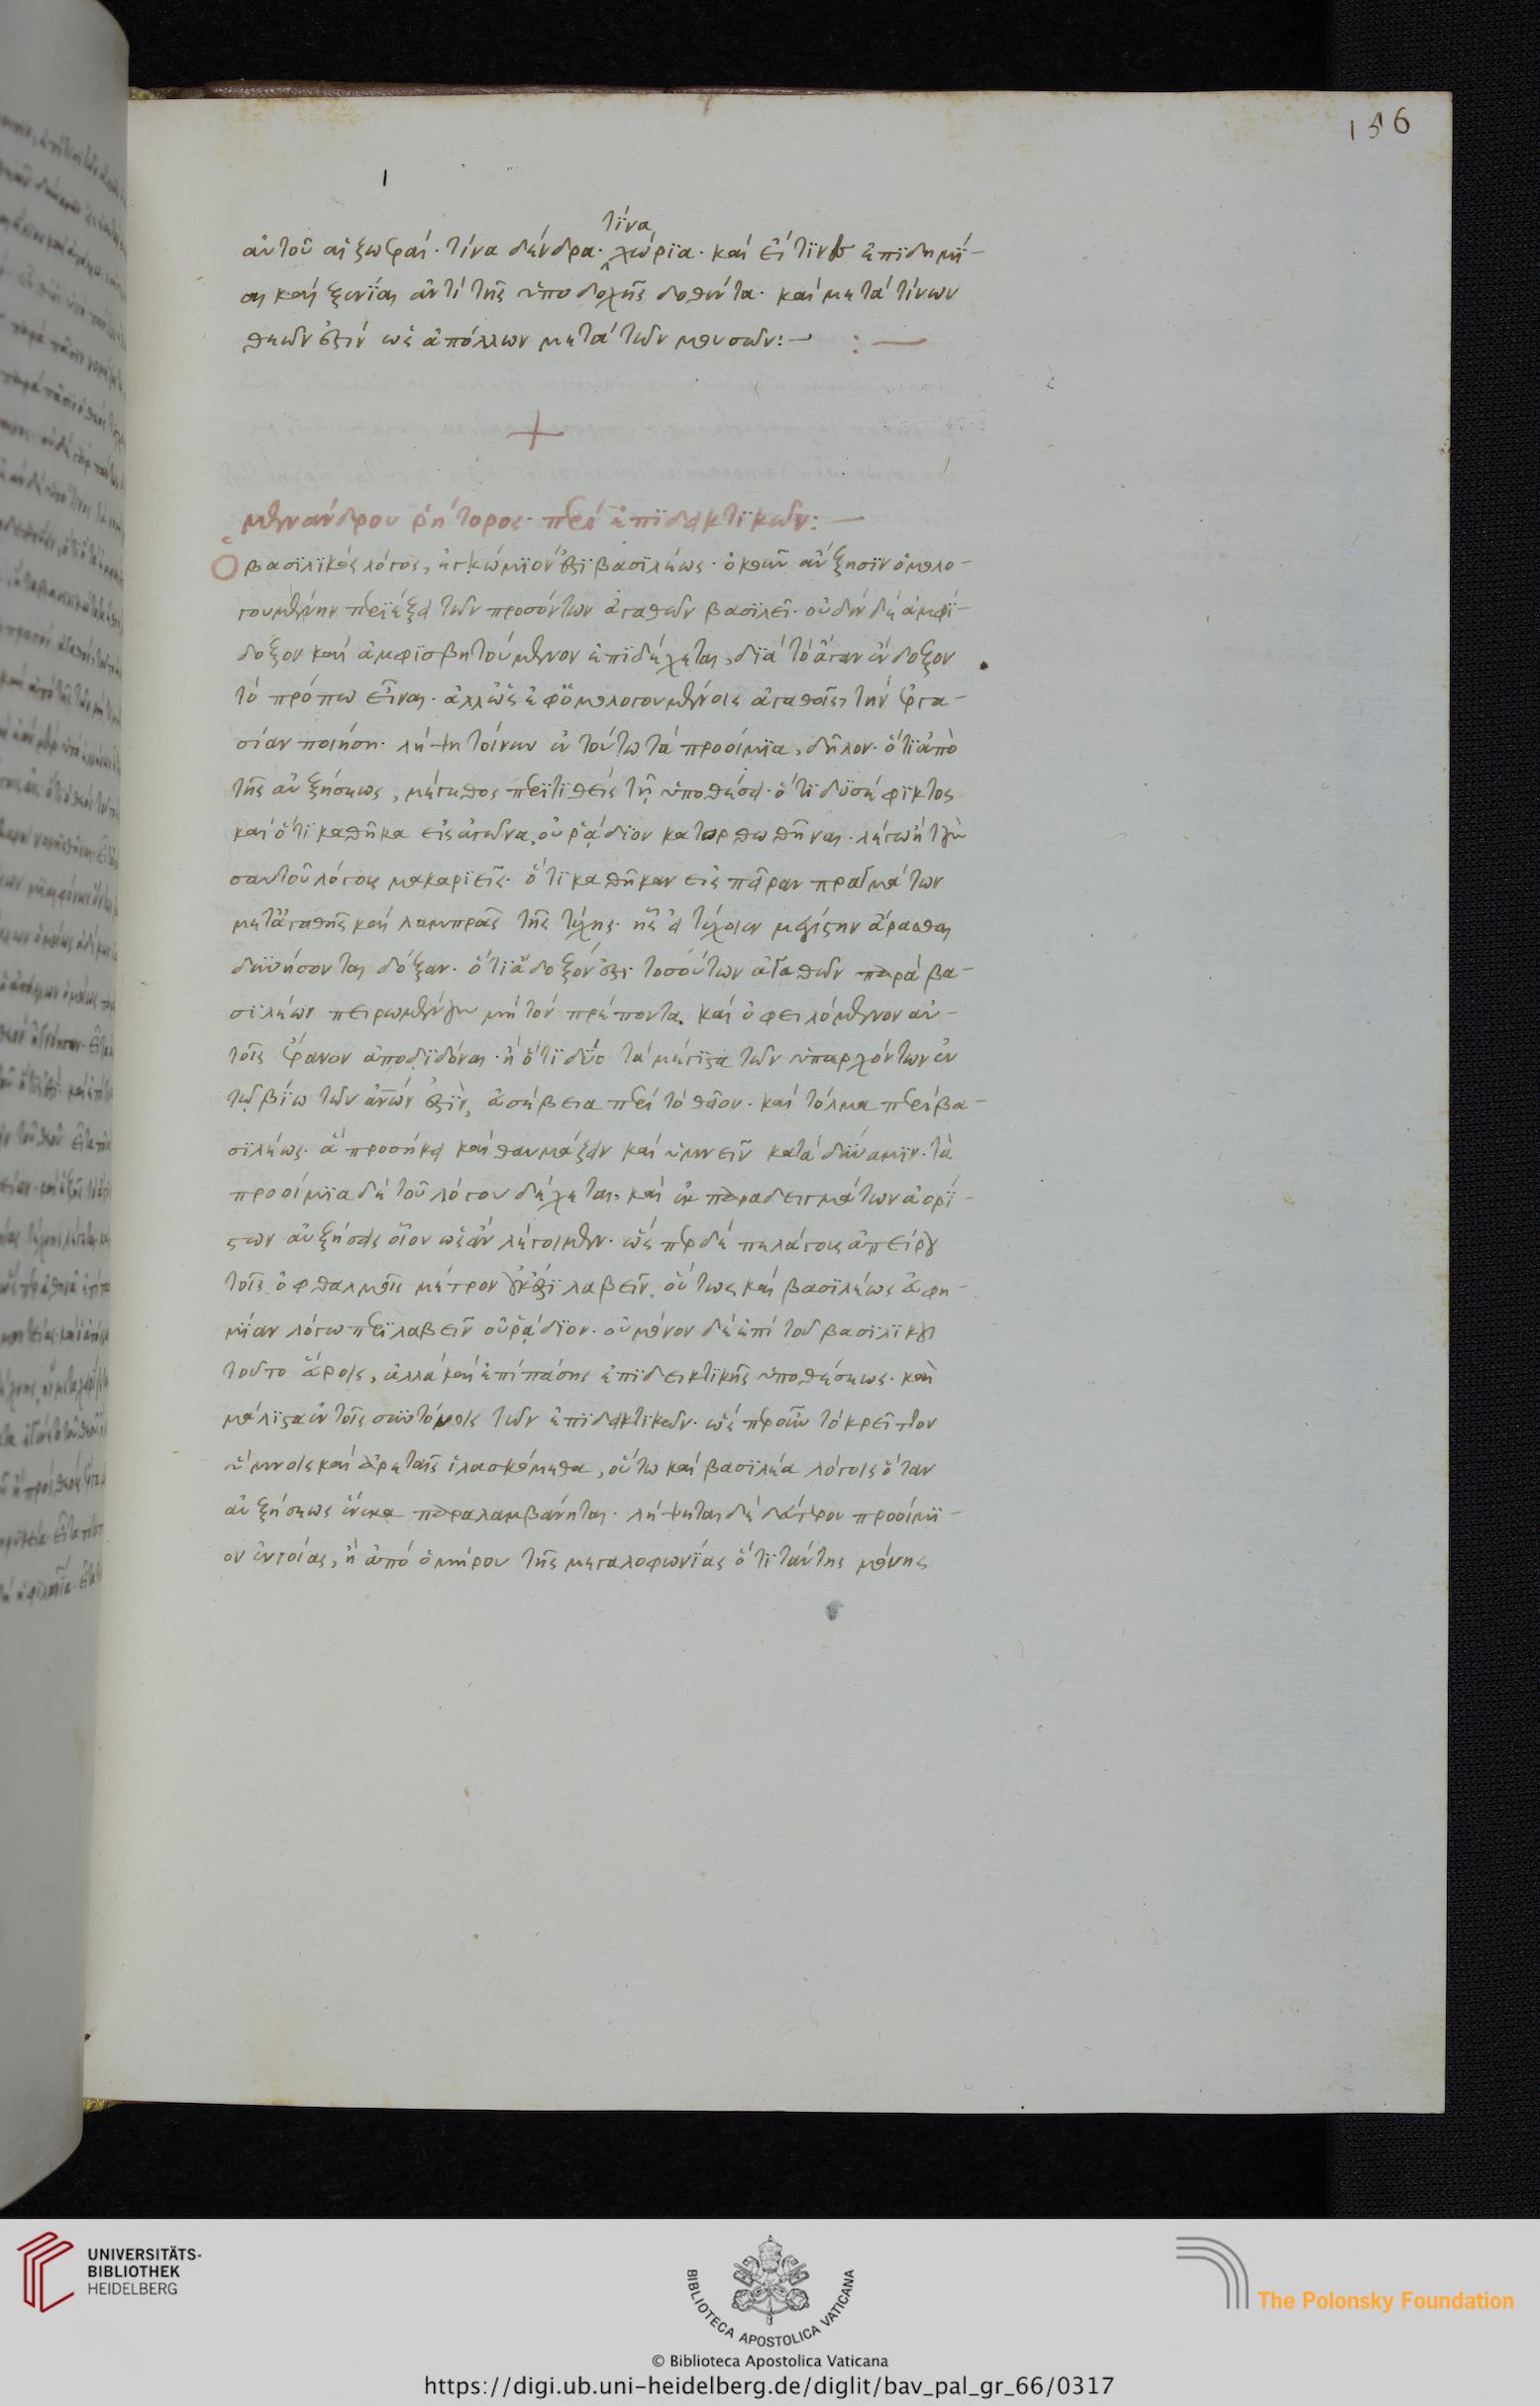 156
τίνα
αὐτοῦ αἱ ἑορταί· τίνα δένδρα· χωρία· καὶ εἴ τινες ἐπιδημί-
αι καὶ ξενίαι ἀντὶ τῆς ὑποδοχῆς δοθέντα· καὶ μετὰ τίνων
θεῶν ἐστίν ὡς ἀπόλλων μετὰ τῶν μουσῶν:— :—
μενάνδρου ῥήτορος· περὶ ἐπιδεικτικῶν:—
Ὁ βασιλικὸς λόγος, ἐγκώμιόν ἐστι βασιλέως· οὐκοῦν αὔξησιν ὁμολο-
γουμένην περιέξει τῶν προσόντων ἀγαθῶν βασιλεῖ· οὐδὲν δὲ ἀμφί-
δοξον καὶ ἀμφισβητούμενον ἐπιδέχεται, διὰ τὸ ἄγαν ἔνδοξον
τὸ πρόσωπον εἶναι· ἀλλ' ὡς ἐφ' ὁμολογουμένοις ἀγαθοῖς, τὴν ἐργα-
σίαν ποιήσῃ· λήψῃ τοίνυν ἐν τούτω τὰ προοίμια, δῆλον· ὅτι ἀπὸ
τῆς αὐξήσεως, μέγεθος περιτιθεὶς τῇ ὑποθέσει· ὅτι δυσέφικτος
καὶ ὅτι καθῆκα εἰς ἀγῶνα, οὐ ῥᾴδιον κατορθωθῆναι· λέγω ἢ τοὺς
σαυτοῦ λόγους μακαριεῖς· ὅτι καθῆκαν εἰς πεῖραν πραγμάτων
μετὰ ἀγαθῆς καὶ λαμπρᾶς τῆς τύχης· ἧς εἰ τύχοιεν μεγίστην ἄρασθαι
δυνήσονται δόξαν· ὅτι ἄδοξόν ἐστι τοσούτων ἀγαθῶν παρὰ βα-
σιλέων πειρωμένους μὴ τὸν πρέποντα καὶ ὀφειλόμενον αὐ-
τοῖς ἔρανον ἀποδιδόναι· ἢ ὅτι δύο τὰ μέγιστα τῶν ὑπαρχόντων ἐν
τῷ βίω τῶν ἀνων ἐστὶν, εὐσέβεια περὶ τὸ θεῖον· καὶ τόλμα περὶ βα-
σιλέως· ἃ προσήκει καὶ θαυμάζειν καὶ ὑμνεῖν κατὰ δύναμιν· τὰ
προοίμια δὲ τοῦ λόγου δέχεται, καὶ ἐκ παραδειγμάτων ἀορί-
στων αὐξήσεις οἷον ὡς ἂν λέγοιμεν· ὥσπερ δὲ πελάγους ἀπείρου
τοῖς ὀφθαλμοῖς μέτρον οὐκ ἔστι λαβεῖν, οὕτως καὶ βασιλέως εὐφη-
μίαν λόγω περιλαβεῖν οὐ ῥᾴδιον· οὐ μόνον δὲ ἐπὶ τοῦ βασιλικοῦ
τοῦτο εὕροις, ἀλλὰ καὶ ἐπὶ πάσης ἐπιδεικτικῆς ὑποθέσεως· καὶ
μάλιστα ἐν τοῖς συντόνοις τῶν ἐπιδεικτικῶν· ὥσπερ οὖν τὸ κρεῖττον
ὕμνοις καὶ ἀρεταῖς ἱλασκόμεθα, οὕτω καὶ βασιλέα λόγοις ὅταν
αὐξήσεως ἕνεκα παραλαμβάνηται· λήψεται δὲ δεύτερον προοίμι-
ον ἐννοίας, ἢ ἀπὸ ὁμήρου τῆς μεγαλοφωνίας ὅτι ταύτης μόνης
UNIVERSITÄTS-
BIBLIOTHEK
HEIDELBERG
BIBLIOTECA APOSTOLICA VATICANA
The Polonsky Foundation
© Biblioteca Apostolica Vaticana
https://digi.ub.uni-heidelberg.de/diglit/bav_pal_gr_66/0317